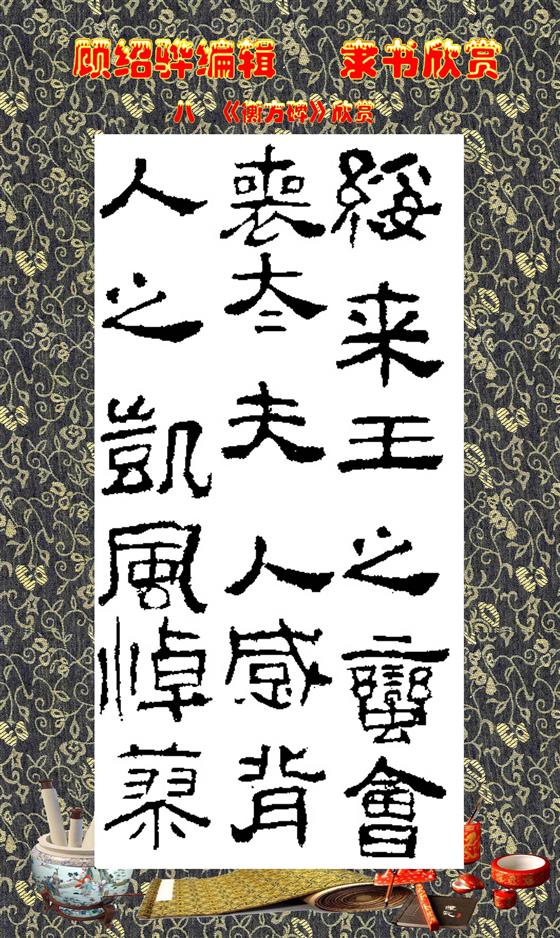 顾绍骅编辑 隶书欣赏
八 《衡方碑》欣赏
綏来王之蠻會
喪夳夫人感背
人之凱風悼蓼